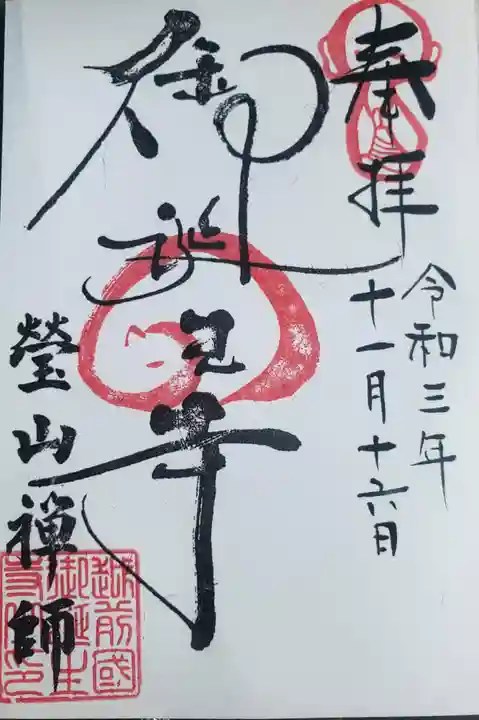 奉拝
令和三年
十一月十六日
御誕生寺
瑩山禅師
越前國
御誕生